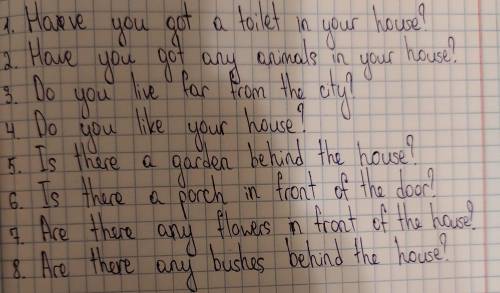 1. Have you got a toilet in your house?
2. Have you got any animals in your house?
3. Do you live far from the city?
4. Do you like your house?
5. Is there a garden behind the house?
6. Is there a porch in front of the door?
7. Are there any flowers in front of the house?
8. Are there any bushes behind the house?